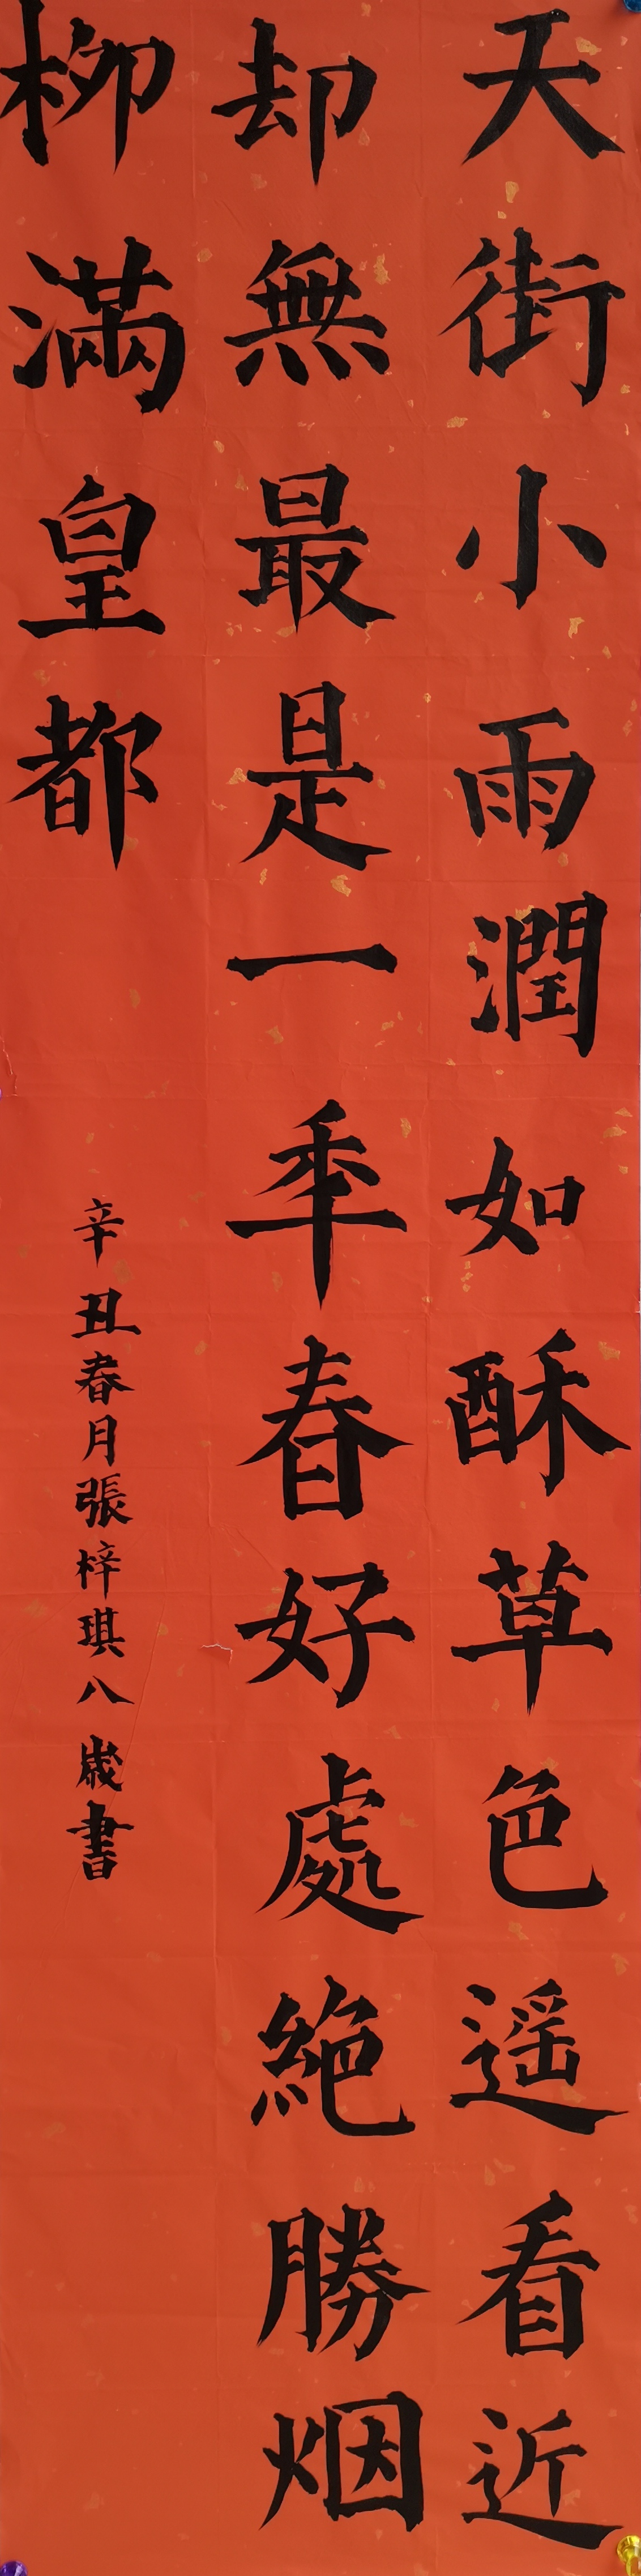 天街小雨潤如酥草色遥看近
却無最是一年春好處絶勝烟
柳滿皇都
辛丑春月張梓琪八歲書